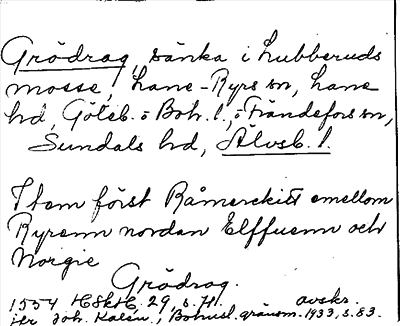 Grödrag, sänka i Lubberuds
mosse, Lane-Ryrs sn, Lane
hd, Göteb. o Boh. l., o Frändefors sn,
Sundals hd, Älvsb. l.
Item först Råmerckitt emellom
Ryrenn nordan Elffuenn och
Norgie
Grödrag.
1554 HSkH. 29, s. 71. avskr.
jfr Joh. Kalén, Bohusl. gränsm. 1933, s. 83.